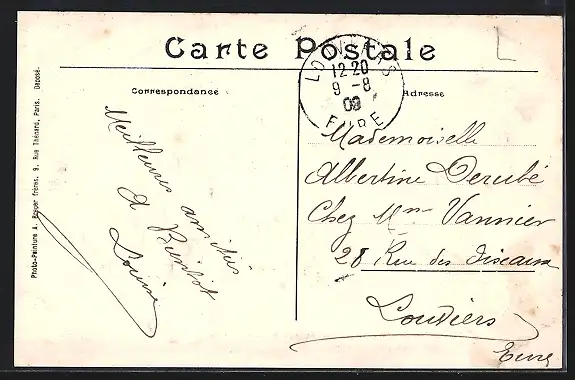 Carte Postale
Correspondance
Adresse
LOUVIERS
12-20
9 -8
09
EURE
Meilleures amitiés
A Bientôt
Louise
Mademoiselle
Albertine Derubé
Chez Mme Vannier
28 Rue des Oiseaux
Louviers
Eure
Photo-Peinture A. frères, 9, Rue Thénard, Paris. Déposé.